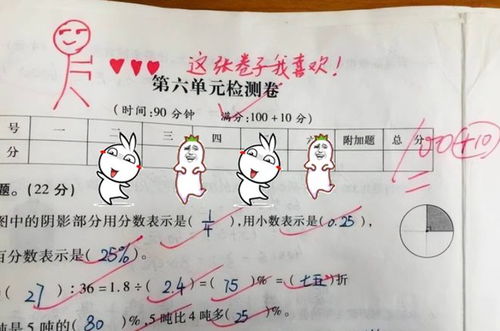 这张卷子我喜欢!
第六单元检测卷
(时间:90分钟 满分:100+10分)
号 一 二 三 四 五 六 附加题 总分
分
100+10
题。(22分)
图中的阴影部分用分数表示是(1/4),用小数表示是(0.25),
百分数表示是(25%)。
(27):36=1.8÷(2.4)=(75)%=(七五)折
吨是5吨的(80)%,5吨比4吨多(25)%。